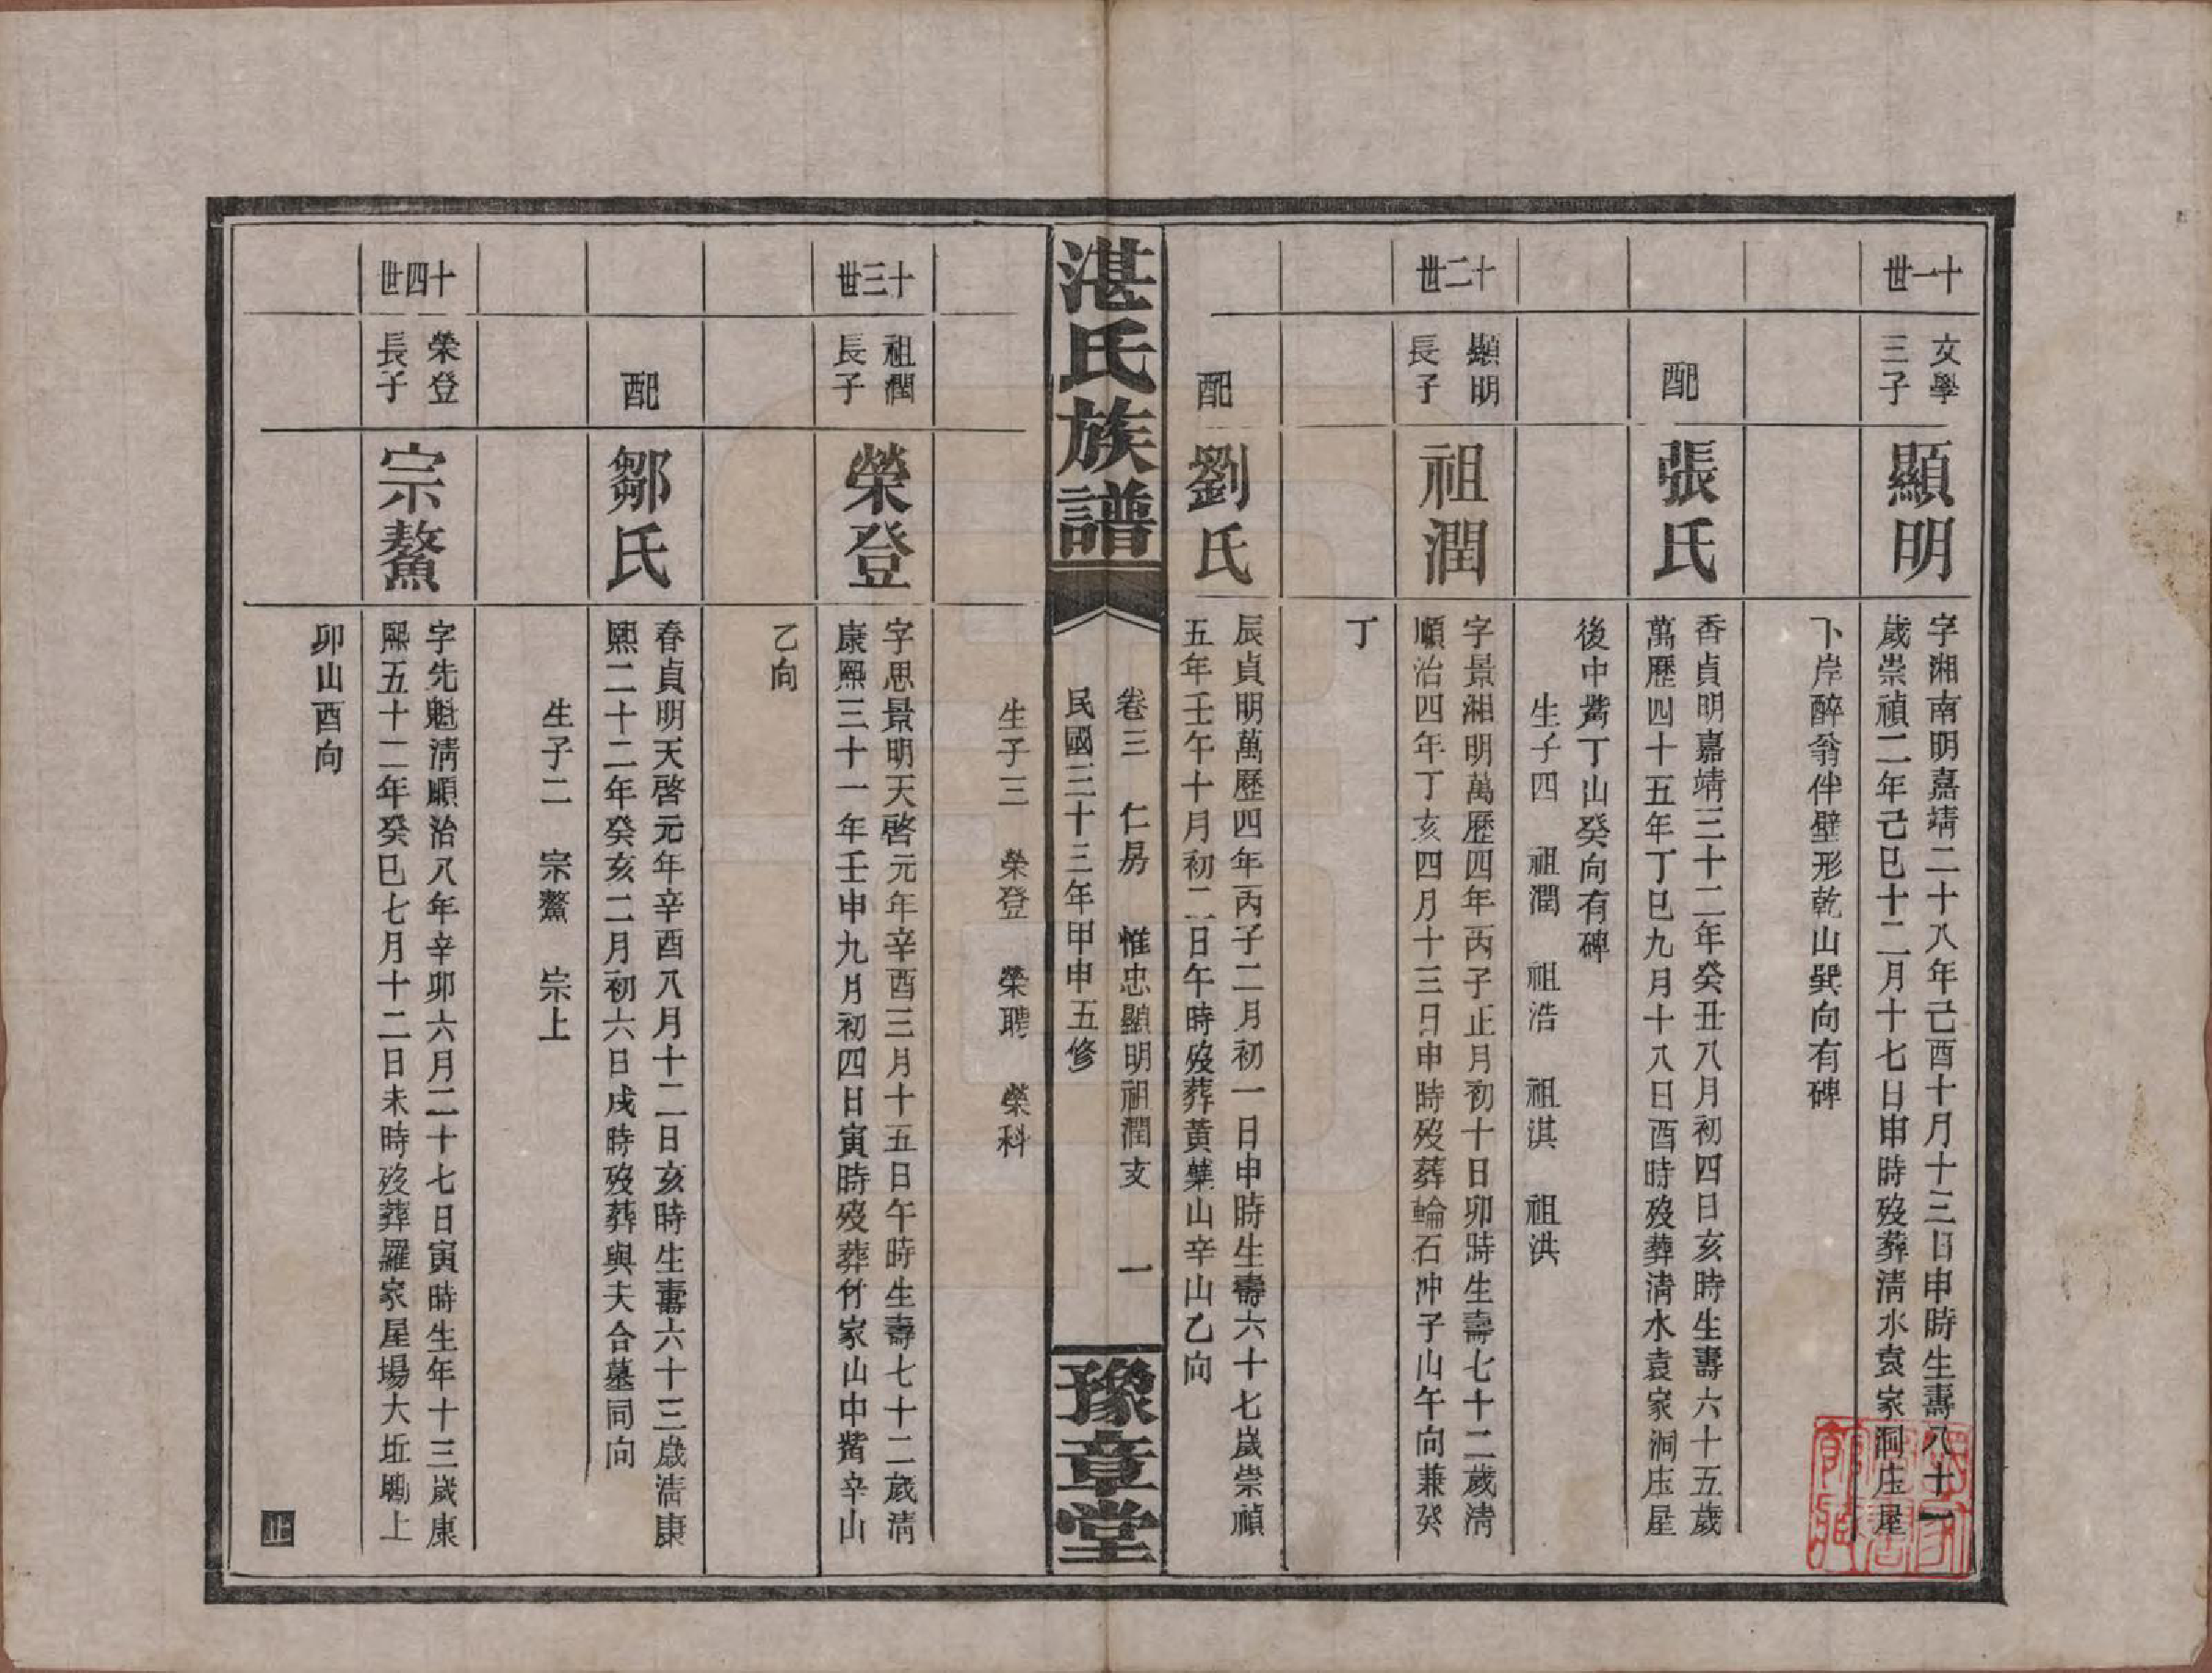 十一世
文學
三子
顯明
字湘南明嘉靖二十八年己酉十月十三日申時生壽八十一
歲崇禎二年己巳十二月十七日申時歿葬清水袁家洞庄屋
下岸醉翁伴壁形乾山巽向有碑
配
張氏
香貞明嘉靖三十二年癸丑八月初四日亥時生壽六十五歲
萬歷四十五年丁巳九月十八日酉時歿葬清水袁家洞庄屋
後中觜丁山癸向有碑
生子四 祖潤 祖浩 祖淇 祖洪
十二世
顯明
長子
祖潤
字景湘明萬歷四年丙子正月初十日卯時生壽七十二歲清
順治四年丁亥四月十三日申時歿葬輪石冲子山午向兼癸
丁
配
劉氏
辰貞明萬歷四年丙子二月初一日申時生壽六十七歲崇禎
五年壬午十月初二日午時歿葬黃葉山辛山乙向
湛氏族譜
卷三 仁房 惟忠顯明祖潤支 一
民國三十三年甲申五修
豫章堂
生子三 榮登 榮聘 榮科
十三世
祖潤
長子
榮登
字思景明天啓元年辛酉三月十五日午時生壽七十二歲清
康熙三十一年壬申九月初四日寅時歿葬竹家山中觜辛山
乙向
配
鄒氏
春貞明天啓元年辛酉八月十二日亥時生壽六十三歲清康
熙二十二年癸亥二月初六日戌時歿葬與夫合墓同向
生子二 宗鰲 宗上
十四世
榮登
長子
宗鰲
字先魁清順治八年辛卯六月二十七日寅時生年十三歲康
熙五十二年癸巳七月十二日未時歿葬羅家屋場大坵墈上
卯山酉向
止